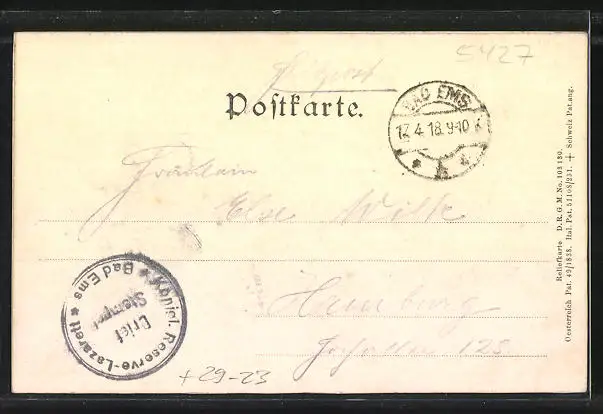 5427
Feldpost
Postkarte.
BAD EMS
17.4.18.9-10
Fräulein
Else Wilk
Hamburg
125
Königl. Reserve-Lazarett * Bad Ems *
Brief
Stempel
+29-23
Reliefkarte D. R. G. M. No. 103 130.
Oesterreich Pat. 49/1838. Ital. Pat. 51108/231. + Schweiz Pat. ang.